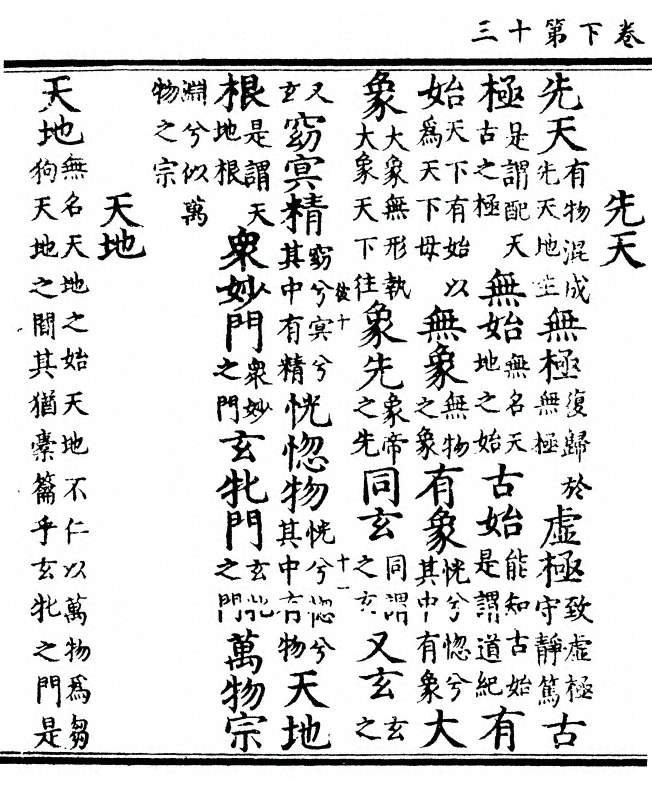 卷下第十三
先天
先天有物混成先天地生無極復歸於無極虛極致虛極守靜篤古
極是謂配天古之極無始無名天地之始古始能知古始是謂道紀有
始天下有始以為天下母無象無物之象有象恍兮惚兮其中有象大
象大象無形執大象天下往象先象帝之先同玄同謂之玄又玄玄之
又玄窈冥精窈兮冥兮其中有精恍惚物恍兮惚兮其中有物天地
十一
根是謂天地根衆妙門衆妙之門玄牝門玄牝之門萬物宗
淵兮似萬物之宗
天地
天地無名天地之始天地不仁以萬物為芻狗天地之間其猶橐籥乎玄牝之門是